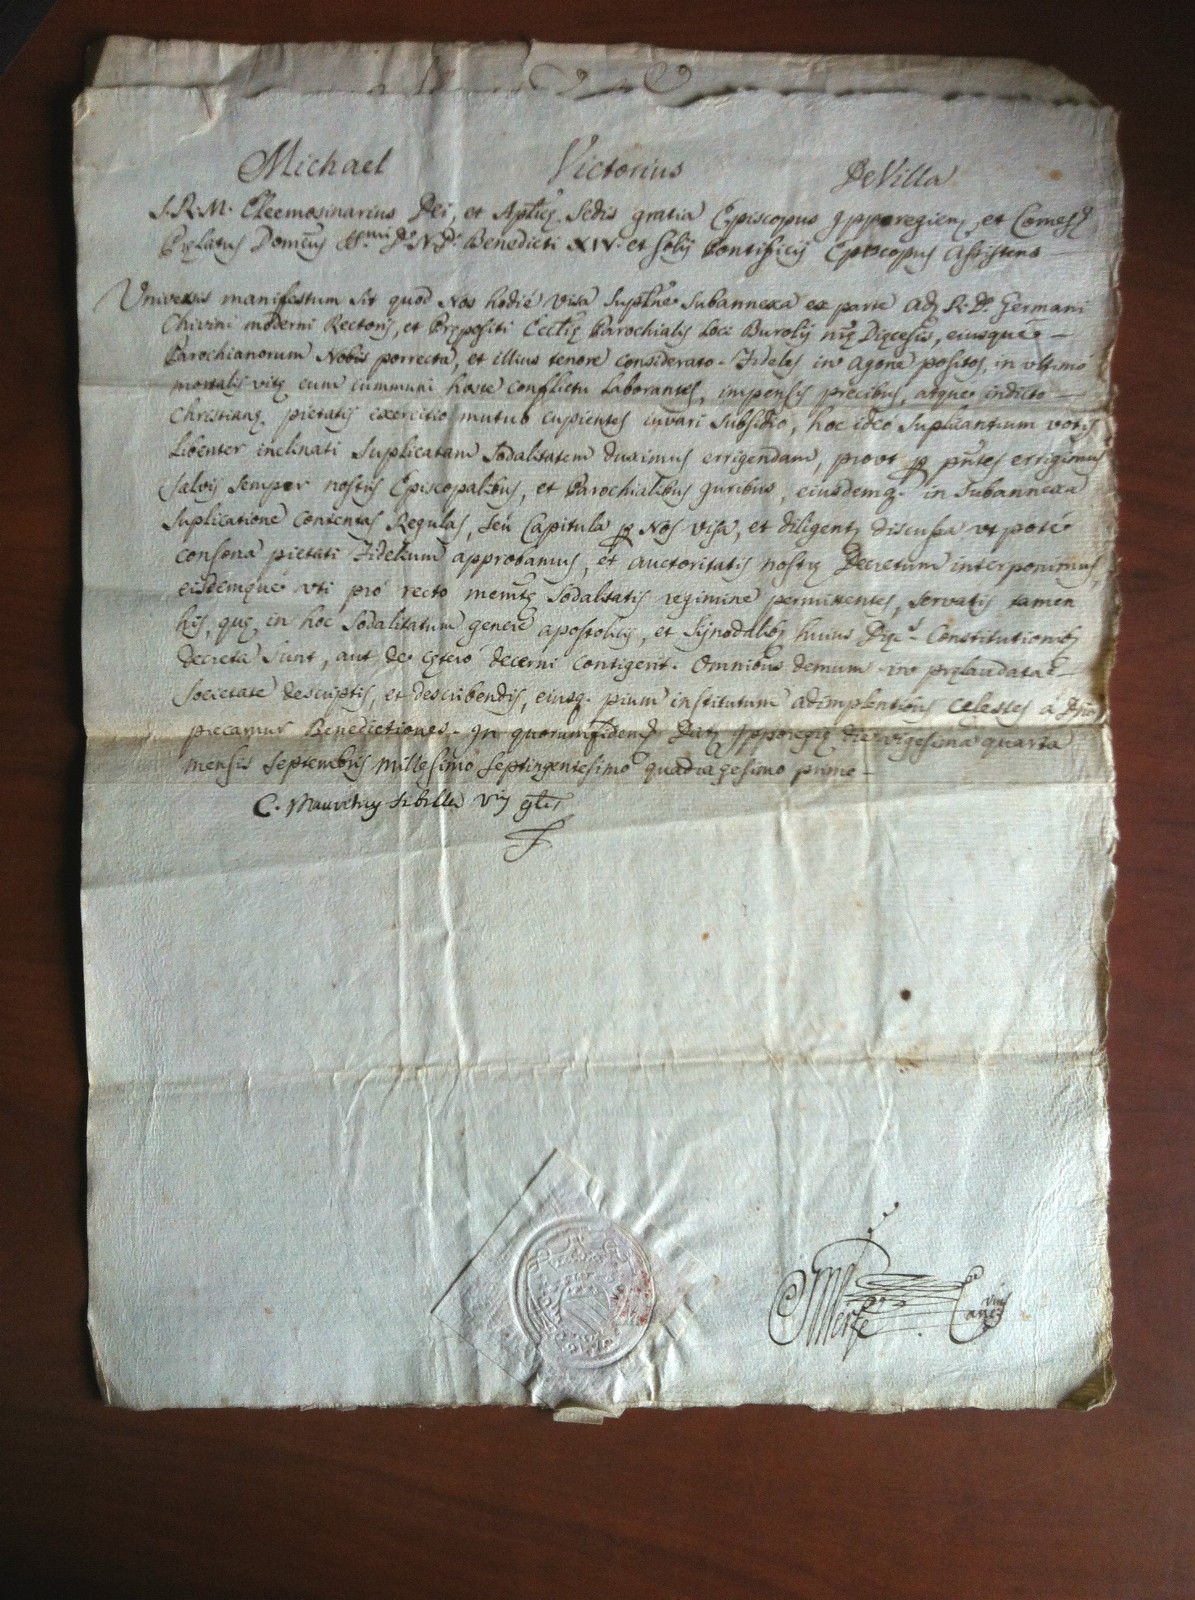 Michael Victorius De Villa
S. R. M. Eleemosinarius Dei, et Aplicę Sedis gratia Episcopus Ipporegien, et Comes
Pręlatus Domcus SS.mi D. N. D. Benedicti XIV. et Solij Pontificij Episcopus Assistens
Universis manifestum sit quod Nos hodiè visa Supłne Subannexa ex parte R. D. Germani
Chivini moderni Rectoris, et Prępositi Eccłię Parochialis Loci Burolij nrę Dięcesis, eiusque
Parochianorum Nobis porrecta, et illius tenore considerato. Fideles in agone positos, in ultimo
mortalis vitę cum communi hoste conflictu Laborantes, impensis precibus, atque indicto
Christianę pietatis exercitio mutuo cupientes iuvari subsidio, hoc ideò Suplicantium votis
Libenter inclinati Suplicatam Sodalitatem duximus errigendam, prout p pntes errigimus
Salvis semper nostris Episcopalibus, et Parochialibus Juribus, eiusdemq. in Subannexa
Suplicatione Contentas Regulas, seù Capitula p Nos visa, et diligentę discussa ut potè
consona pietati Fidelium approbamus, et auctoritatis nostrę Decretum interponimus,
eisdemquè uti pro recto memtę Sodalitatis regimine permittentes, servatis tamen
his, quę in hoc Sodalitatum genere apostolicis, et Sijnodalibs huius Dięcs. Constitutionibs
decreta sunt, aut de cętero decerni contigerit. Omnibus demum in pręlaudata
Societate descriptis, et describendis, eiusq. pium institutum adimplentibus celestes a Dno
precamur Benedictiones. In quorum fidem Datę Ipporegię die vigesima quarta
mensis Septembris millesimo Septingentesimo quadragesimo primo
C. Sibilla Vis gtis